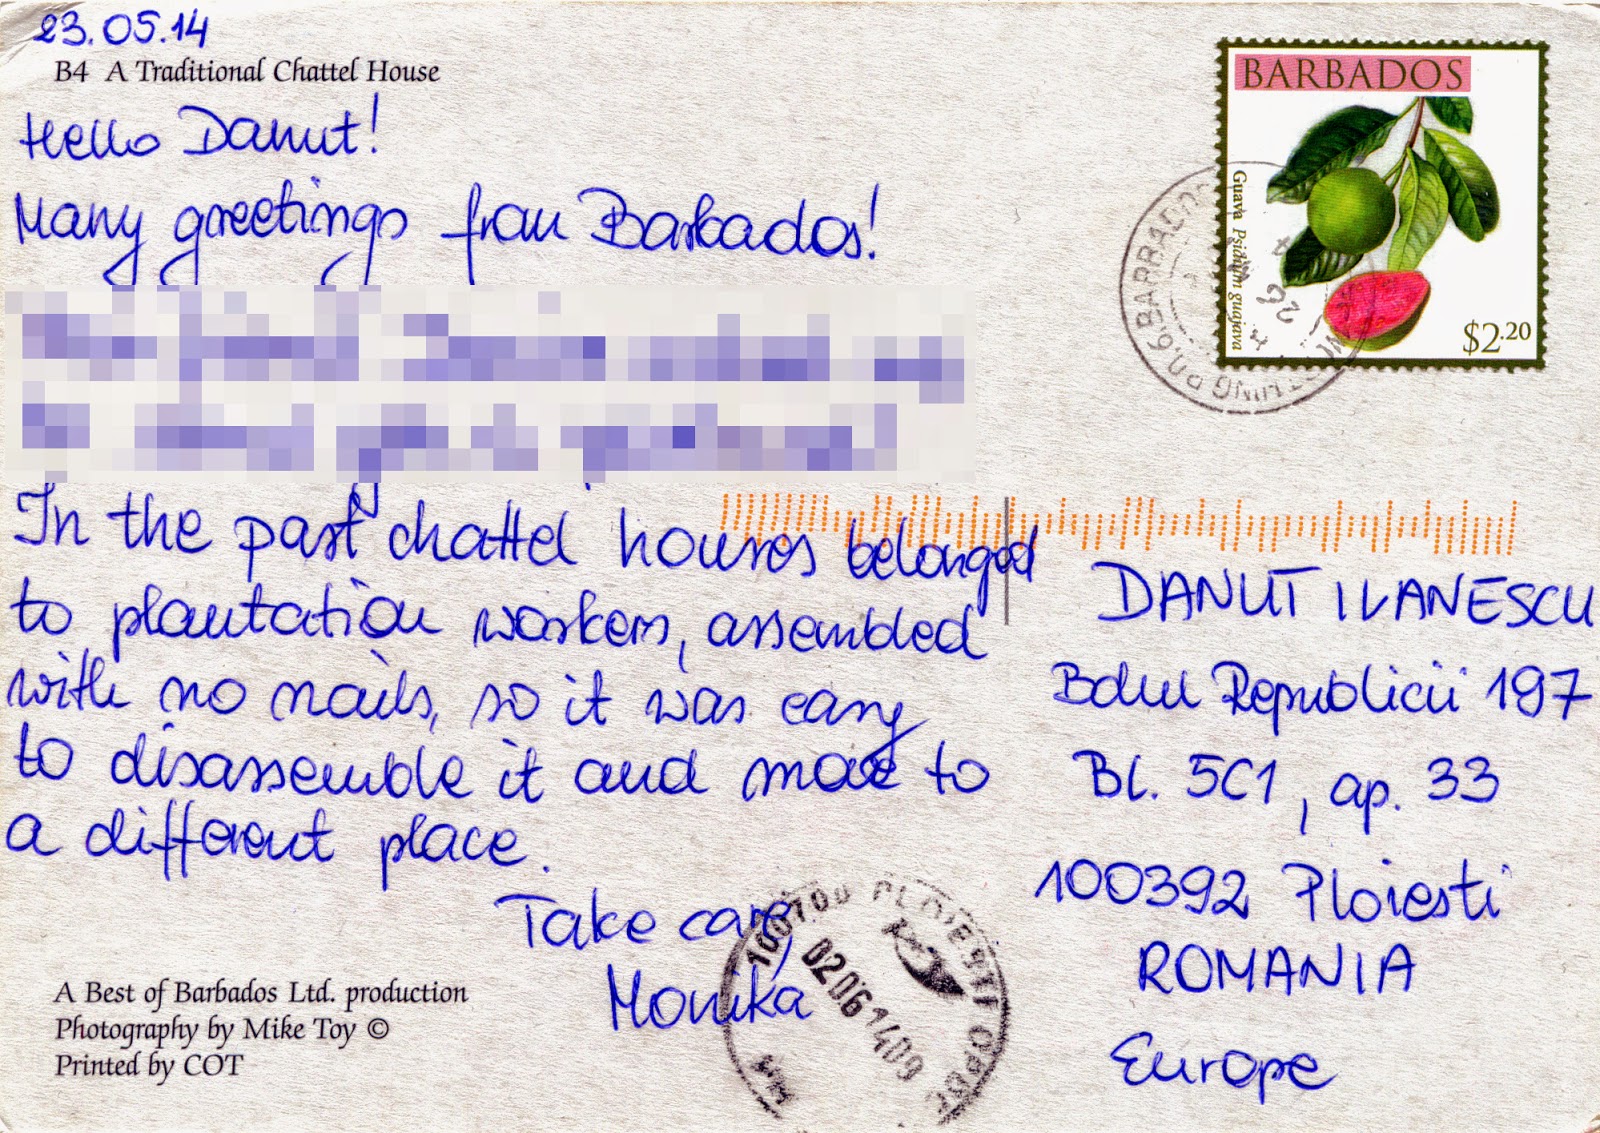 23.05.14
B4 A Traditional Chattel House
Hello Danut!
Many greetings from Barbados!
In the past chattel houses belonged
to plantation workers, assembled
with no nails, so it was easy
to disassemble it and move to
a different place.
Take care,
Monika
A Best of Barbados Ltd. production
Photography by Mike Toy ©
Printed by COT
BARBADOS
Guava Psidium guajava
$2.20
BARBADOS
G.P.O.
26
DANUT IVANESCU
Bdul Republicii 197
Bl. 5C1, ap. 33
100392 Ploiesti
ROMANIA
Europe
PLOIESTI
02061409